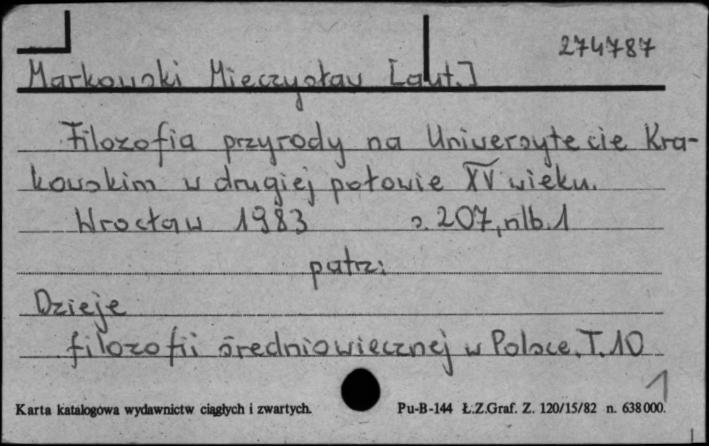 274787
Markowski Mieczysław [aut.]
Filozofia przyrody na Uniwersytecie Kra-
kowskim w drugiej połowie XV wieku.
Wrocław 1983 s. 207, nlb. 1
patrz:
Dzieje
filozofii średniowiecznej w Polsce, T. 10
1
Karta katalogowa wydawnictw ciągłych i zwartych. Pu-B-144 Ł.Z.Graf. Z. 120/15/82 n. 638000.